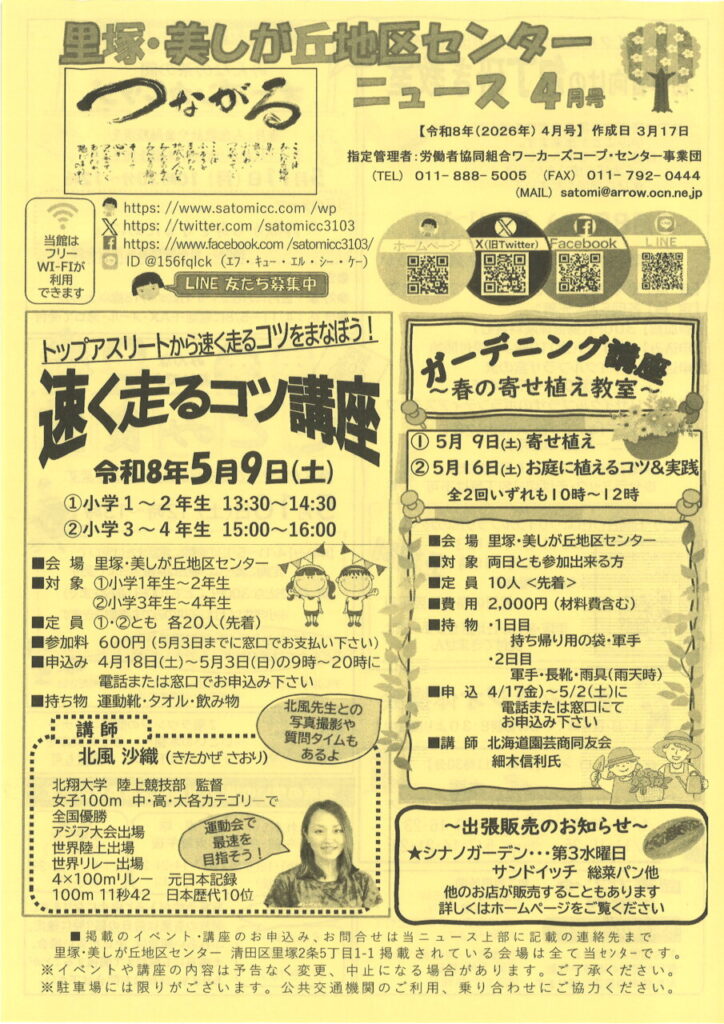 里塚・美しが丘地区センター
ニュース 4月号
つながる
【令和8年(2026年) 4月号】 作成日 3月17日
指定管理者：労働者協同組合ワーカーズコープ・センター事業団
(TEL) 011-888-5005 (FAX) 011-792-0444
(MAIL) satomi@arrow.ocn.ne.jp
当館は
フリー
WI-FIが
利用
できます
https: //www.satomicc.com /wp
https: //twitter.com /satomicc3103
https: //www.facebook.com /satomicc3103/
ID @156fqlck (エフ・キュー・エル・シー・ケー)
LINE 友だち募集中
ホームページ
X(旧Twitter)
Facebook
LINE
トップアスリートから速く走るコツをまなぼう！
速く走るコツ講座
令和8年5月9日(土)
①小学1～2年生 13:30～14:30
②小学3～4年生 15:00～16:00
■会 場 里塚・美しが丘地区センター
■対 象 ①小学1年生～2年生
②小学3年生～4年生
■定 員 ①・②とも 各20人(先着)
■参加料 600円 (5月3日までに窓口でお支払い下さい)
■申込み 4月18日(土)～5月3日(日)の9時～20時に
電話または窓口でお申込み下さい
■持ち物 運動靴・タオル・飲み物
北風先生との
写真撮影や
質問タイムも
あるよ
講師
北風 沙織 (きたかぜ さおり)
北翔大学 陸上競技部 監督
女子100m 中・高・大各カテゴリーで
全国優勝
アジア大会出場
世界陸上出場
世界リレー出場
4×100mリレー 元日本記録
100m 11秒42 日本歴代10位
運動会で
最速を
目指そう！
ガーデニング講座
～春の寄せ植え教室～
① 5月 9日(土) 寄せ植え
② 5月16日(土) お庭に植えるコツ&実践
全2回いずれも10時～12時
■会 場 里塚・美しが丘地区センター
■対 象 両日とも参加出来る方
■定 員 10人 <先着>
■費 用 2,000円 (材料費含む)
■持 物 ・1日目
持ち帰り用の袋・軍手
・2日目
軍手・長靴・雨具(雨天時)
■申 込 4/17金)～5/2(土)に
電話または窓口にて
お申込み下さい
■講 師 北海道園芸商同友会
細木信利氏
～出張販売のお知らせ～
★シナノガーデン・・・第3水曜日
サンドイッチ 総菜パン他
他のお店が販売することもあります
詳しくはホームページをご覧ください
■掲載のイベント・講座のお申込み、お問合せは当ニュース上部に記載の連絡先まで
里塚・美しが丘地区センター 清田区里塚2条5丁目1-1 掲載されている会場は全て当センターです。
※イベントや講座の内容は予告なく変更、中止になる場合があります。ご了承ください。
※駐車場には限りがございます。公共交通機関のご利用、乗り合わせにご協力ください。